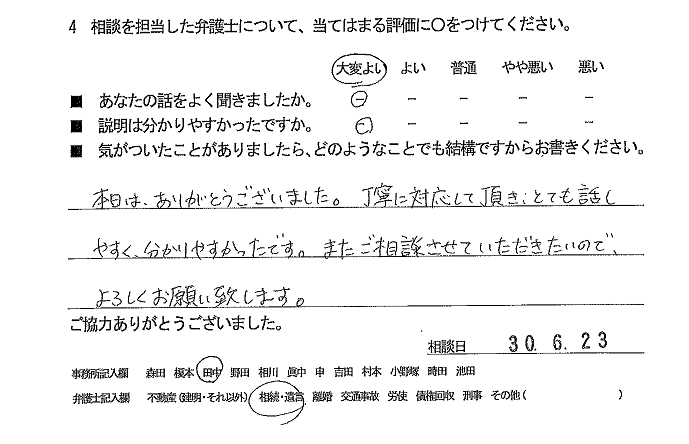 4 相談を担当した弁護士について、当てはまる評価に○をつけてください。
大変よい よい 普通 やや悪い 悪い
■ あなたの話をよく聞きましたか。 － － － － －
■ 説明は分かりやすかったですか。 － － － － －
■ 気がついたことがありましたら、どのようなことでも結構ですからお書きください。
本日は、ありがとうございました。丁寧に対応して頂き、とても話し
やすく、分かりやすかったです。またご相談させていただきたいので、
よろしくお願い致します。
ご協力ありがとうございました。
相談日 30.6.23
事務所記入欄 森田 榎本 田中 野田 相川 眞中 申 吉田 村本 小野塚 時田 池田
弁護士記入欄 不動産(建明・それ以外) 相続・遺言 離婚 交通事故 労使 債権回収 刑事 その他( )